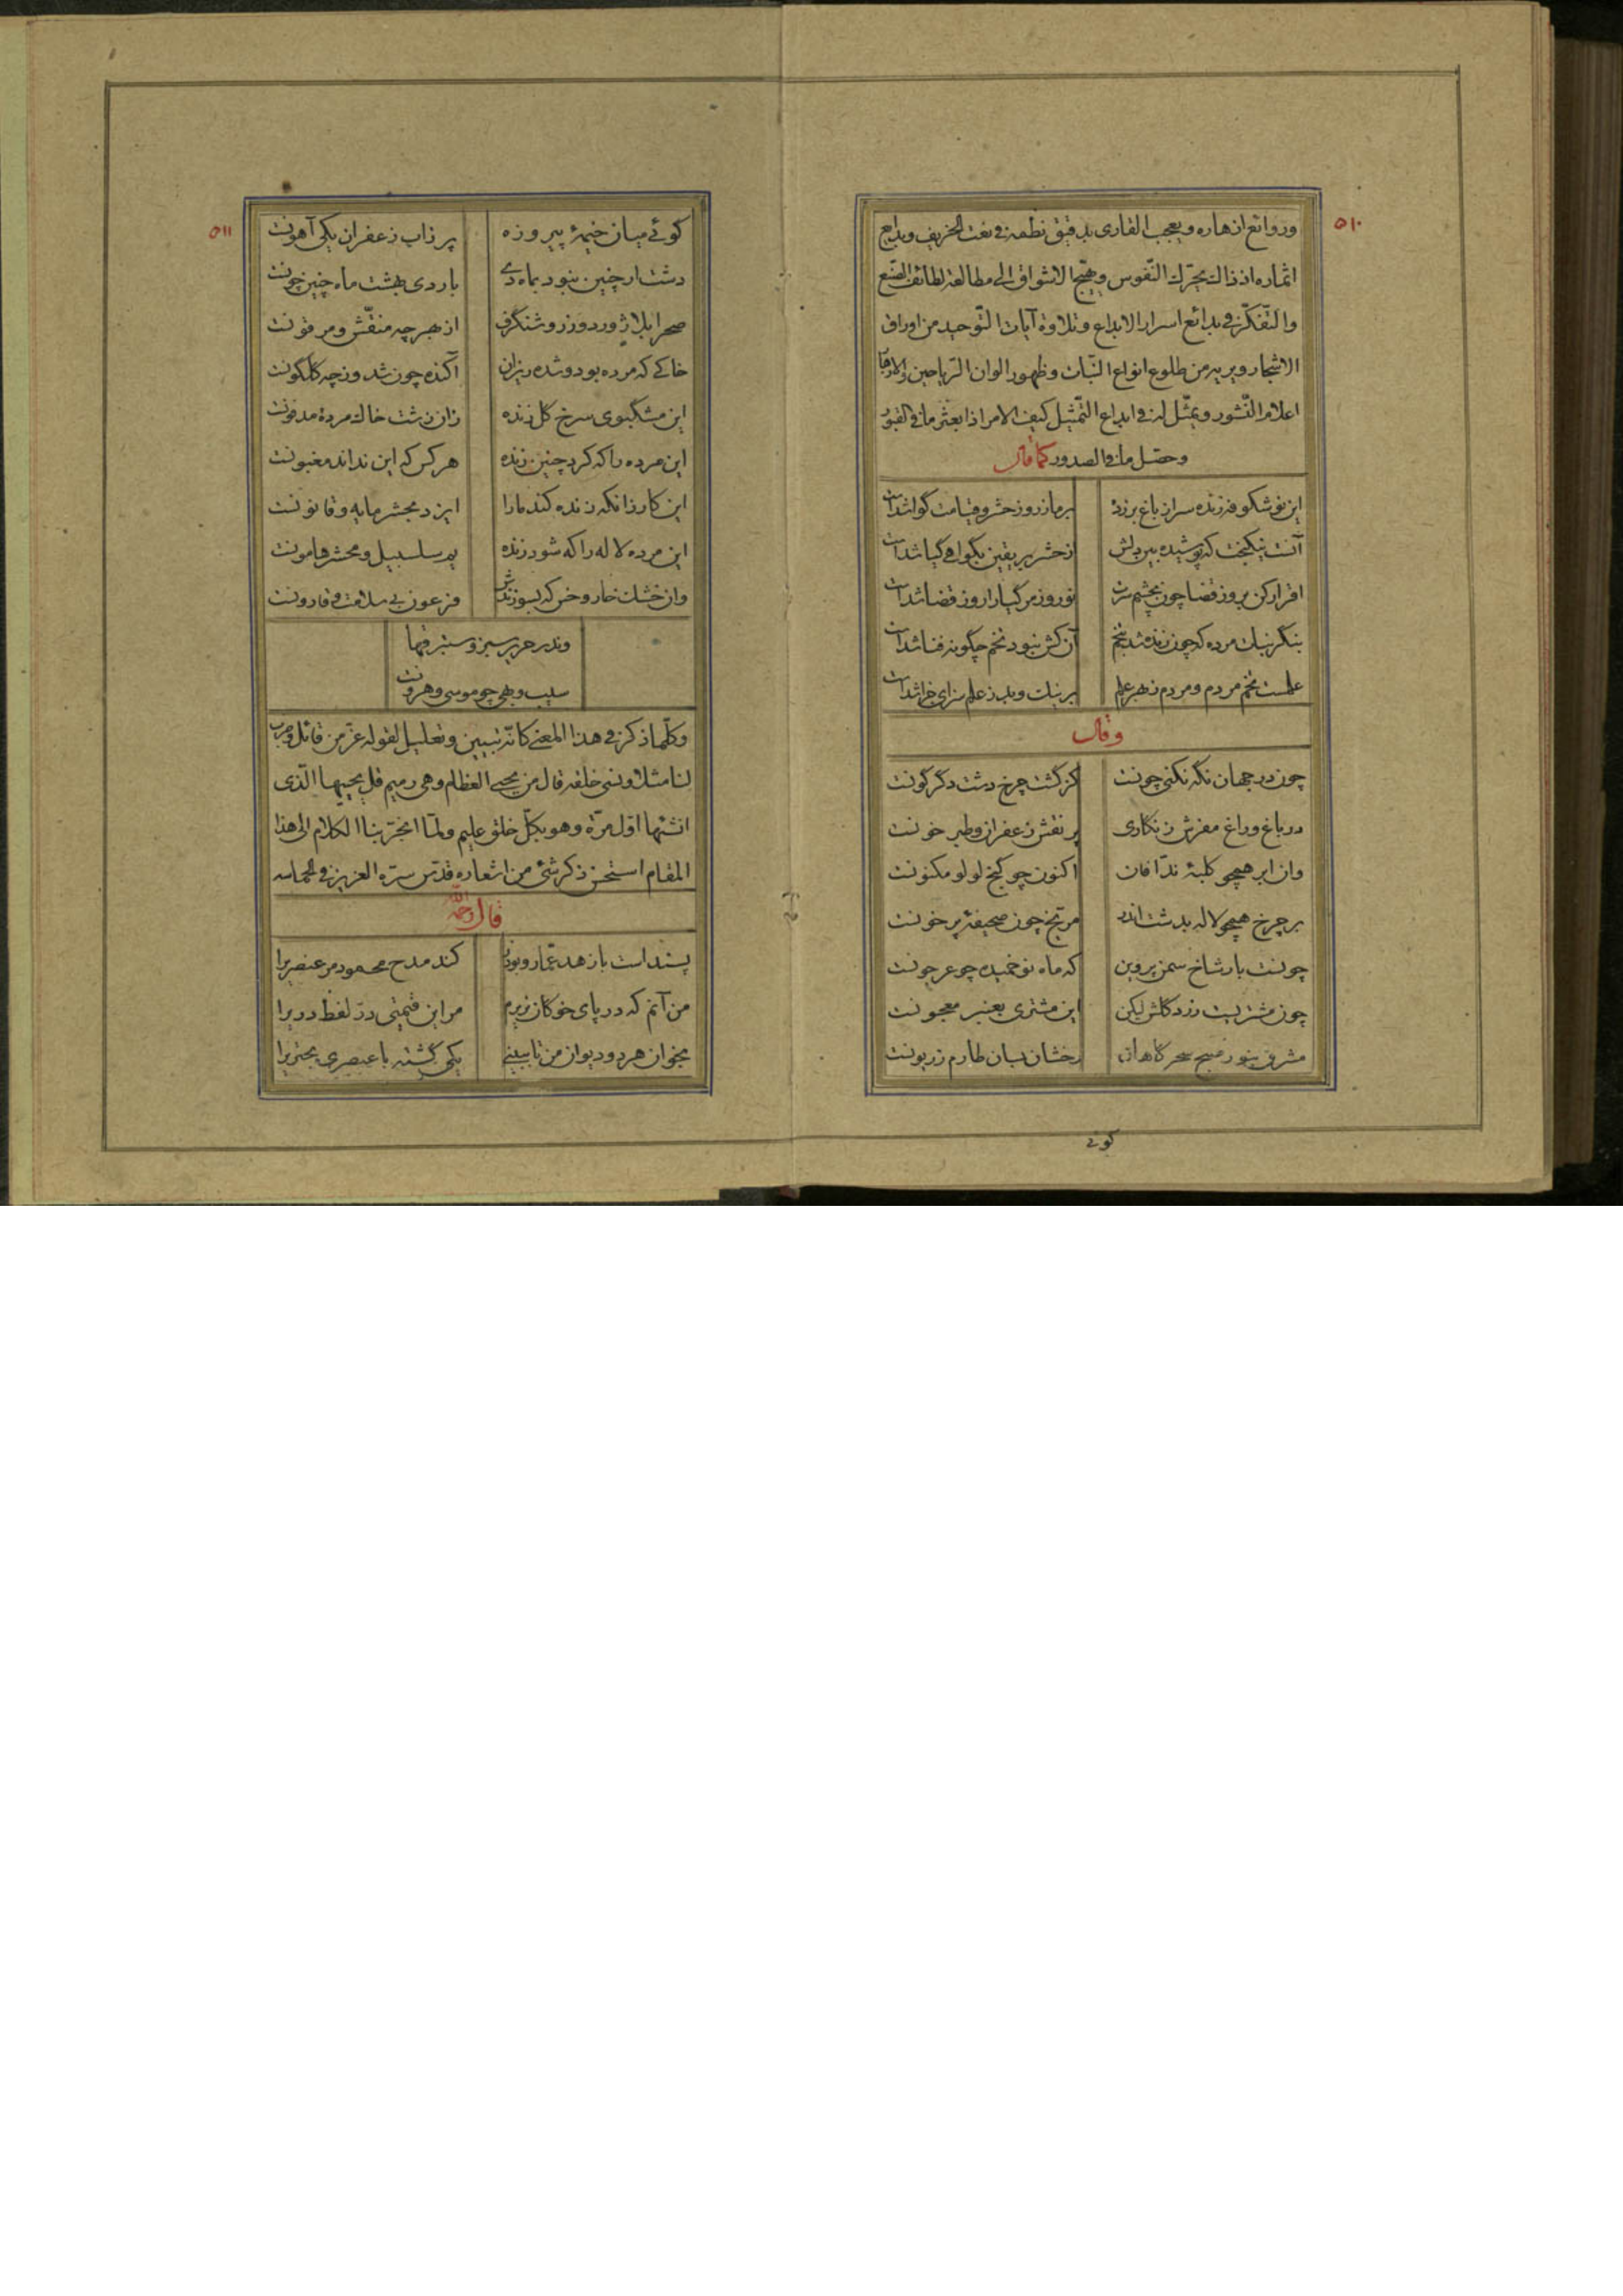 ٥١٠
وروائع ازهاره ويعجب القارى بدقيق نظمه فى نعت الخريف وبدايع
اثماره اذ ذاك يحرّك النّفوس ويهيّج الاشواق الى مطالعة لطائف الصّنع
والتّفكّر فى بدائع اسرار الابداع وتلاوة آيات التّوحيد من اوراق
الاشجار ويريه من طلوع انواع النّبات وظهور الوان الرّياحين والاوراق
اعلام النّشور ويمثّل له فى ابداع التّمثيل كيف الامر اذا بعثر ما فى القبور
وحصّل ما فى الصدور كما قال
اين نوشكوفه زنده سر از باغ برزده بر ما ز روز حشر و قيامت گوا شداست
آنست نيكبخت كه پوشيده بيردلش از حشر پر يقين بگواهى گيا شداست
اقرار كن بروز قضا چون بچشم سرت نوروز مر گيا را روز قضا شداست
بنگر نبات مرده كه چون زنده شد بتخم آن كش نبود تخم چگونه فنا شداست
علمست تخم مردم و مردم ز بهر علم بر نيك و بد ز علم سزاى جزا شداست
وقال
چون در جهان نگه نكنى چونست كز گشت چرخ دشت دگرگونست
در باغ و راغ مفرش زنگارى پر نقش زعفران و طبر خونست
وان ابر همچو كلبهٔ ندّافان اكنون چو گنج لولو مكنونست
بر چرخ همچو لاله بدشت اندر مرّيخ چون صحيفهٔ پر خونست
چونست بار شاخ سمن پروين كه ماه نو خميده چو عرجونست
چون مشتريست زرد گلش ليكن اين مشترى بعنبر معجونست
مشرق بنور صبح سحرگاهان رخشان بسان طارم زريونست
گوئى
٥١١
گوئى ميان خيمهٔ پيروزه پر زاب زعفران يكى آهونست
دشت ار چنين نبود بماه دى باردى بهشت ماه چنين چونست
صحرا بلاژورد و زر و شنگرف از بهر چه منقّش و مرقونست
خاكى كه مرده بود و شده ريزان آكنده چون شد و زچه گلگونست
اين مشگبوى سرخ گل زنده زان زشت خاك مردهٔ مدفونست
اين مرده را كه كرد چنين زنده هر كس كه اين نداند مغبونست
اين كار زانكه زنده كند ما را ايزد بمحشر مايه و قانونست
اين مرده لاله را كه شود زنده پر سلسبيل و محشر هامونست
وان خشك خار و خس كه بسوزندش فرعون بى سلامت و قارونست
وندر حرير سبز و ستبرقها
سيب و بهى چو موسى و هرونست
وكلّما ذكر فى هذا المعنى كانّه تبيين وتعليل لقوله عزّ من قائل وضرب
لنا مثلا ونسى خلقه قال من يحيى العظام وهى رميم قل يحييها الّذى
انشئها اوّل مرّة وهو بكلّ خلق عليم ولمّا انجرّ بنا الكلام الى هذا
المقام استحسن ذكر شئ من اشعاره قدّس سرّه العزيز فى الحماسه
قال رحمه الله
پسنداست با زهد عمّار و بوذر كند مدح محمود مر عنصريرا
من آنم كه در پاى خوكان نريزم مر اين قيمتى درّ لفظ دريرا
بخوان هر دو ديوان من تا ببينى يكى گشته با عنصرى بحتريرا